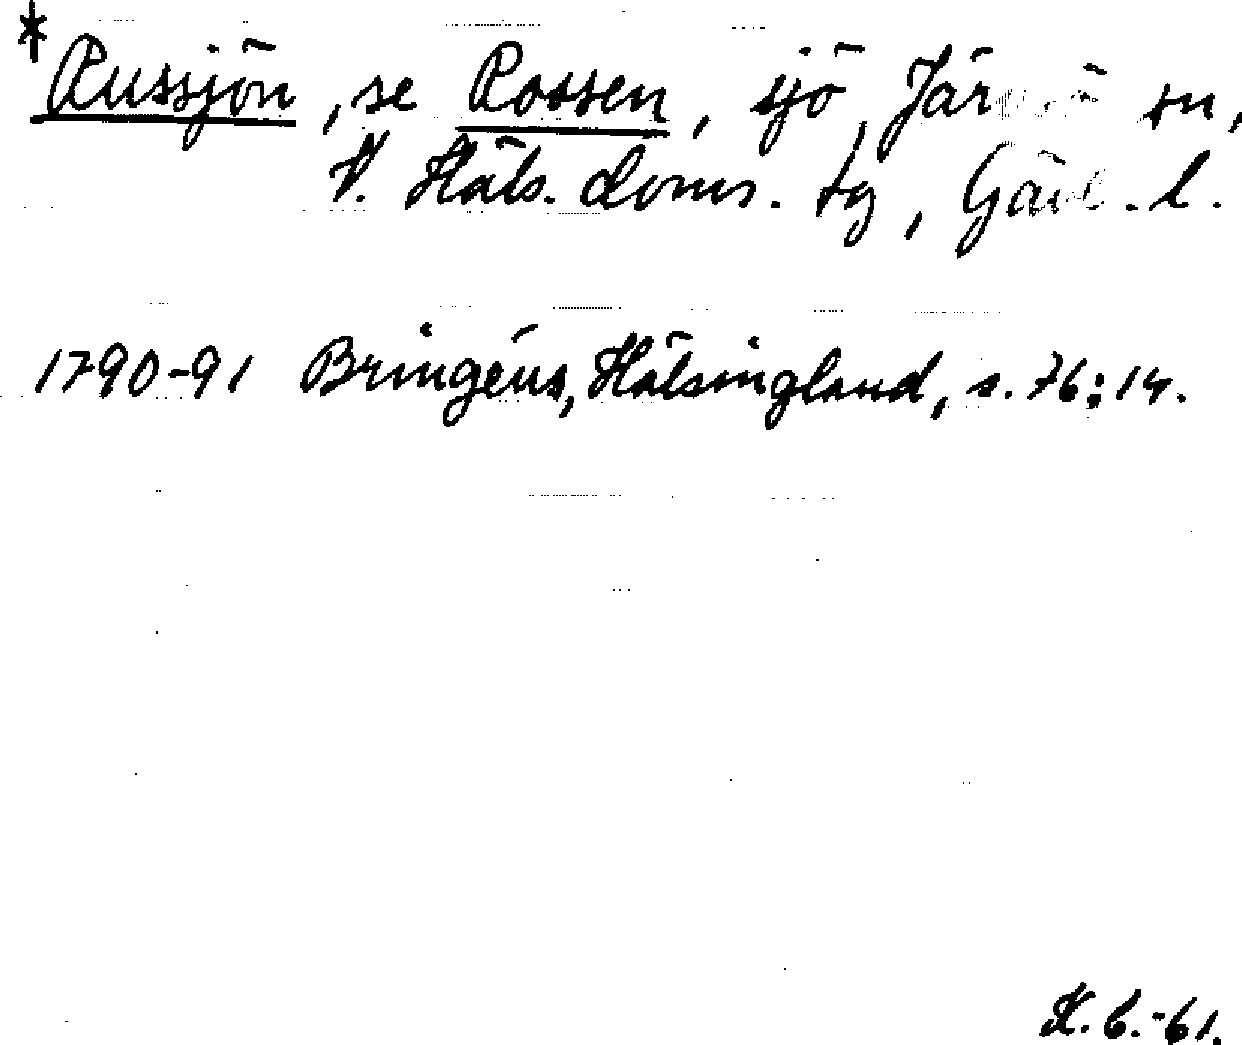 * Russjön, se Rossen, sjö, Järvsö sn,
V. Häls. doms. tg, Gävl. l.
1790-91 Bringéus, Hälsingland, s. 76:14.
K. C. -61.